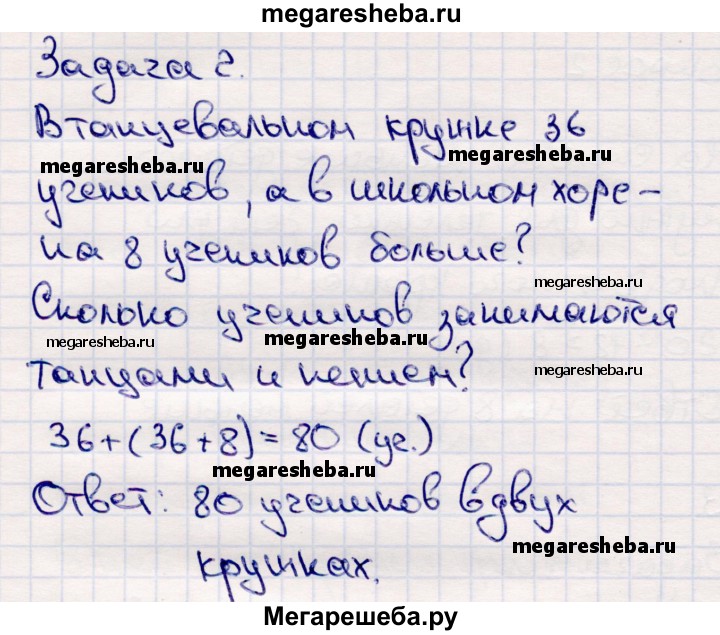 megaresheba.ru
Задача 2.
В танцевальном кружке 36
megaresheba.ru
megaresheba.ru
учеников, а в школьном хоре -
на 8 учеников больше?
megaresheba.ru
Сколько учеников занимаются
megaresheba.ru
megaresheba.ru
танцами и пением?
megaresheba.ru
36+(36+8)=80 (уч.)
megaresheba.ru
Ответ: 80 учеников в двух
megaresheba.ru
кружках.
Мегарешеба.ру